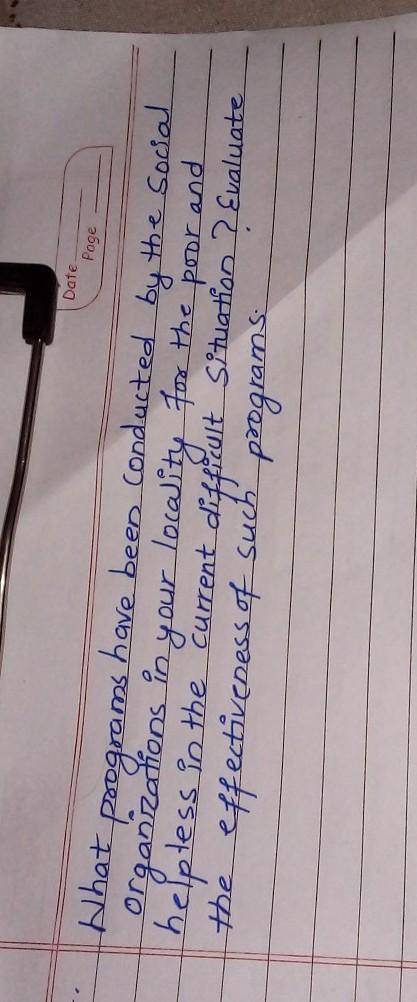 Date
Page
What programs have been conducted by the social
organizations in your locality for the poor and
helpless in the current difficult situation ? Evaluate
the effectiveness of such programs.